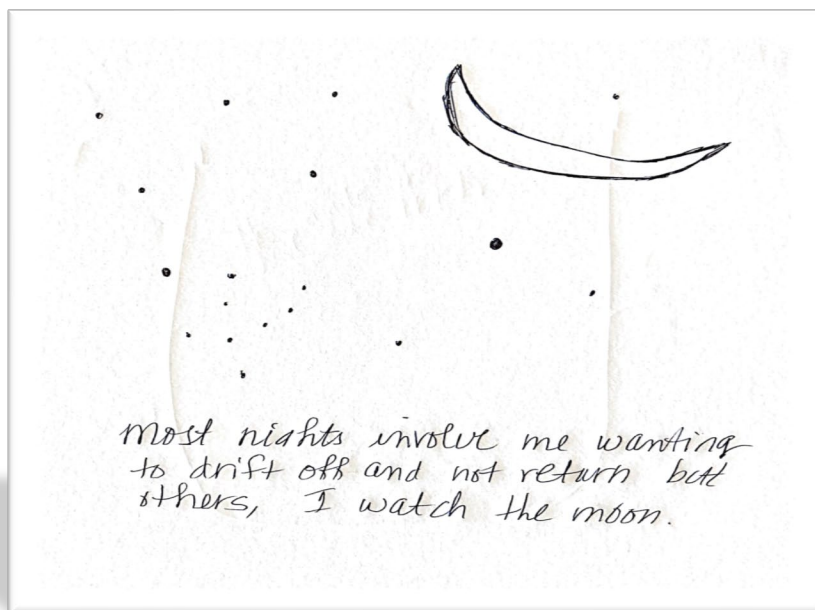 most nights involve me wanting
to drift off and not return but
others, I watch the moon.